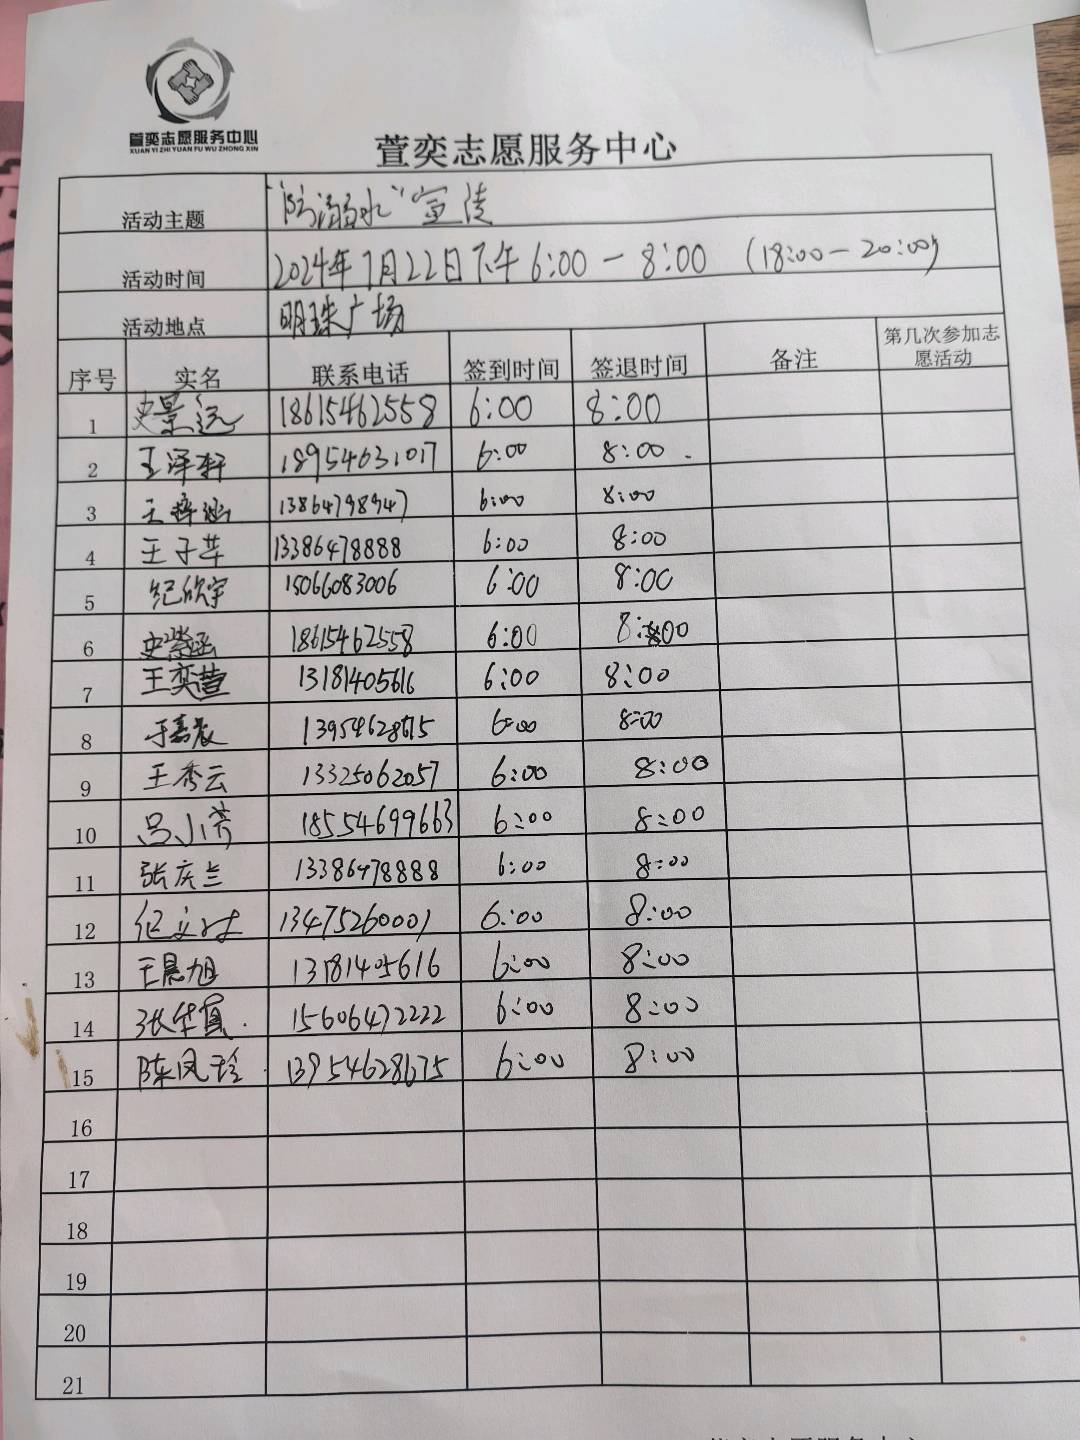 萱奕志愿服务中心
XUAN YI ZHI YUAN FU WU ZHONG XIN
萱奕志愿服务中心
活动主题 "防溺水"宣传
活动时间 2024年7月22日下午6:00-8:00 (18:00-20:00)
活动地点 明珠广场
序号 实名 联系电话 签到时间 签退时间 备注 第几次参加志愿活动
1 史景远 18615462558 6:00 8:00
2 王泽轩 18954631017 6:00 8:00
3 王梓涵 13864798947 6:00 8:00
4 王子苹 13386478888 6:00 8:00
5 纪欣宇 15066083006 6:00 8:00
6 18615462558 6:00 8:00
7 王奕萱 13181405616 6:00 8:00
8 于嘉宸 13954628675 6:00 8:00
9 王秀云 13325062057 6:00 8:00
10 吕小芳 18554699663 6:00 8:00
11 张庆兰 13386478888 6:00 8:00
12 13475260001 6:00 8:00
13 王晨旭 13181405616 6:00 8:00
14 张华真 15606472222 6:00 8:00
15 陈凤玲 13954628675 6:00 8:00
16
17
18
19
20
21